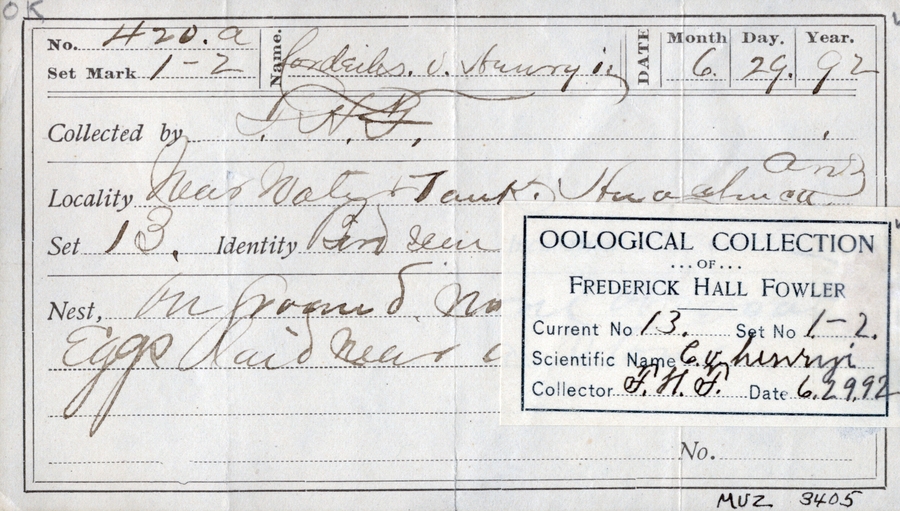 OK
No. 420.a Name. Cordeiles. v. Henryii DATE Month Day. Year.
Set Mark 1-2 6. 29. 92
Collected by F. H. F.
Ariz
Locality Near Water Tank. Huachuca
Set 13. Identity Bird seen
Nest, On Ground. No
Eggs laid near
No.
OOLOGICAL COLLECTION
...OF...
FREDERICK HALL FOWLER
Current No 13. Set No 1-2.
Scientific Name C. v. henryi
Collector F. H. F. Date 6.29.92
MVZ 3405